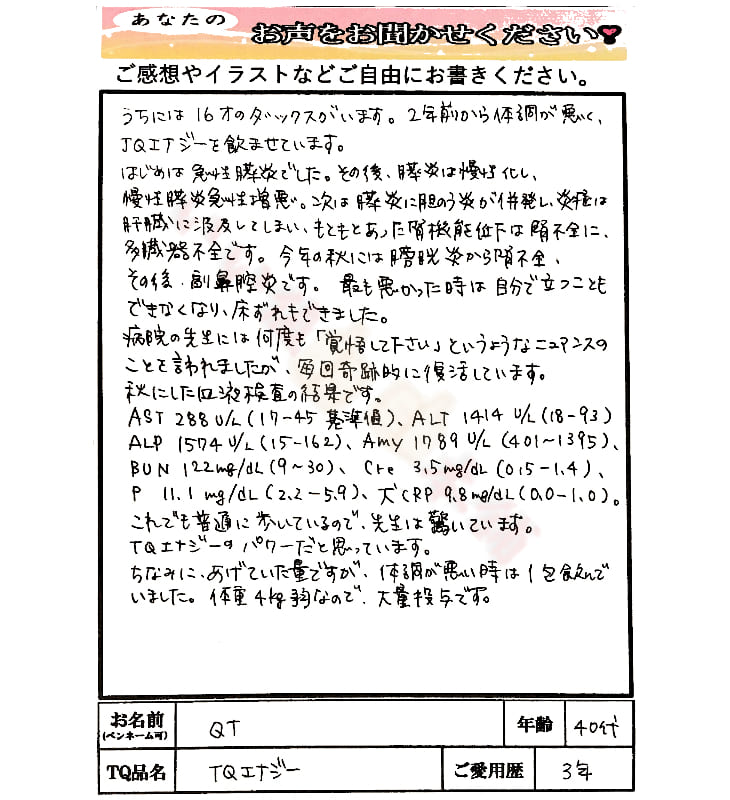 あなたの
お声をお聞かせください
ご感想やイラストなどご自由にお書きください。
うちには16才のダックスがいます。2年前から体調が悪く、
TQエナジーを飲ませています。
はじめは急性膵炎でした。その後、膵炎は慢性化し、
慢性膵炎急性増悪。次は膵炎に胆のう炎が併発し、炎症は
肝臓に波及してしまい、もともとあった腎機能低下は腎不全に、
多臓器不全です。今年の秋には膀胱炎から腎不全、
その後、副鼻腔炎です。最も悪かった時は自分で立つことも
できなくなり、床ずれもできました。
病院の先生には何度も「覚悟して下さい」というようなニュアンスの
ことを言われましたが、毎回奇跡的に復活しています。
秋にした血液検査の結果です。
AST 288 U/L (17-45 基準値)、ALT 1414 U/L (18-93)
ALP 1574 U/L (15-162)、Amy 1789 U/L (401~1395)、
BUN 122mg/dL (9~30)、Cre 3.5mg/dL (0.5-1.4)、
P 11.1 mg/dL (2.2-5.9)、犬CRP 9.8mg/dL (0.0-1.0)。
これでも普通に歩いているので、先生は驚いています。
TQエナジーのパワーだと思っています。
ちなみに、あげていた量ですが、体調が悪い時は1包飲んで
いました。体重4kg弱なので、大量投与です。
お名前 (ペンネーム可) QT 年齢 40代
TQ品名 TQエナジー ご愛用歴 3年